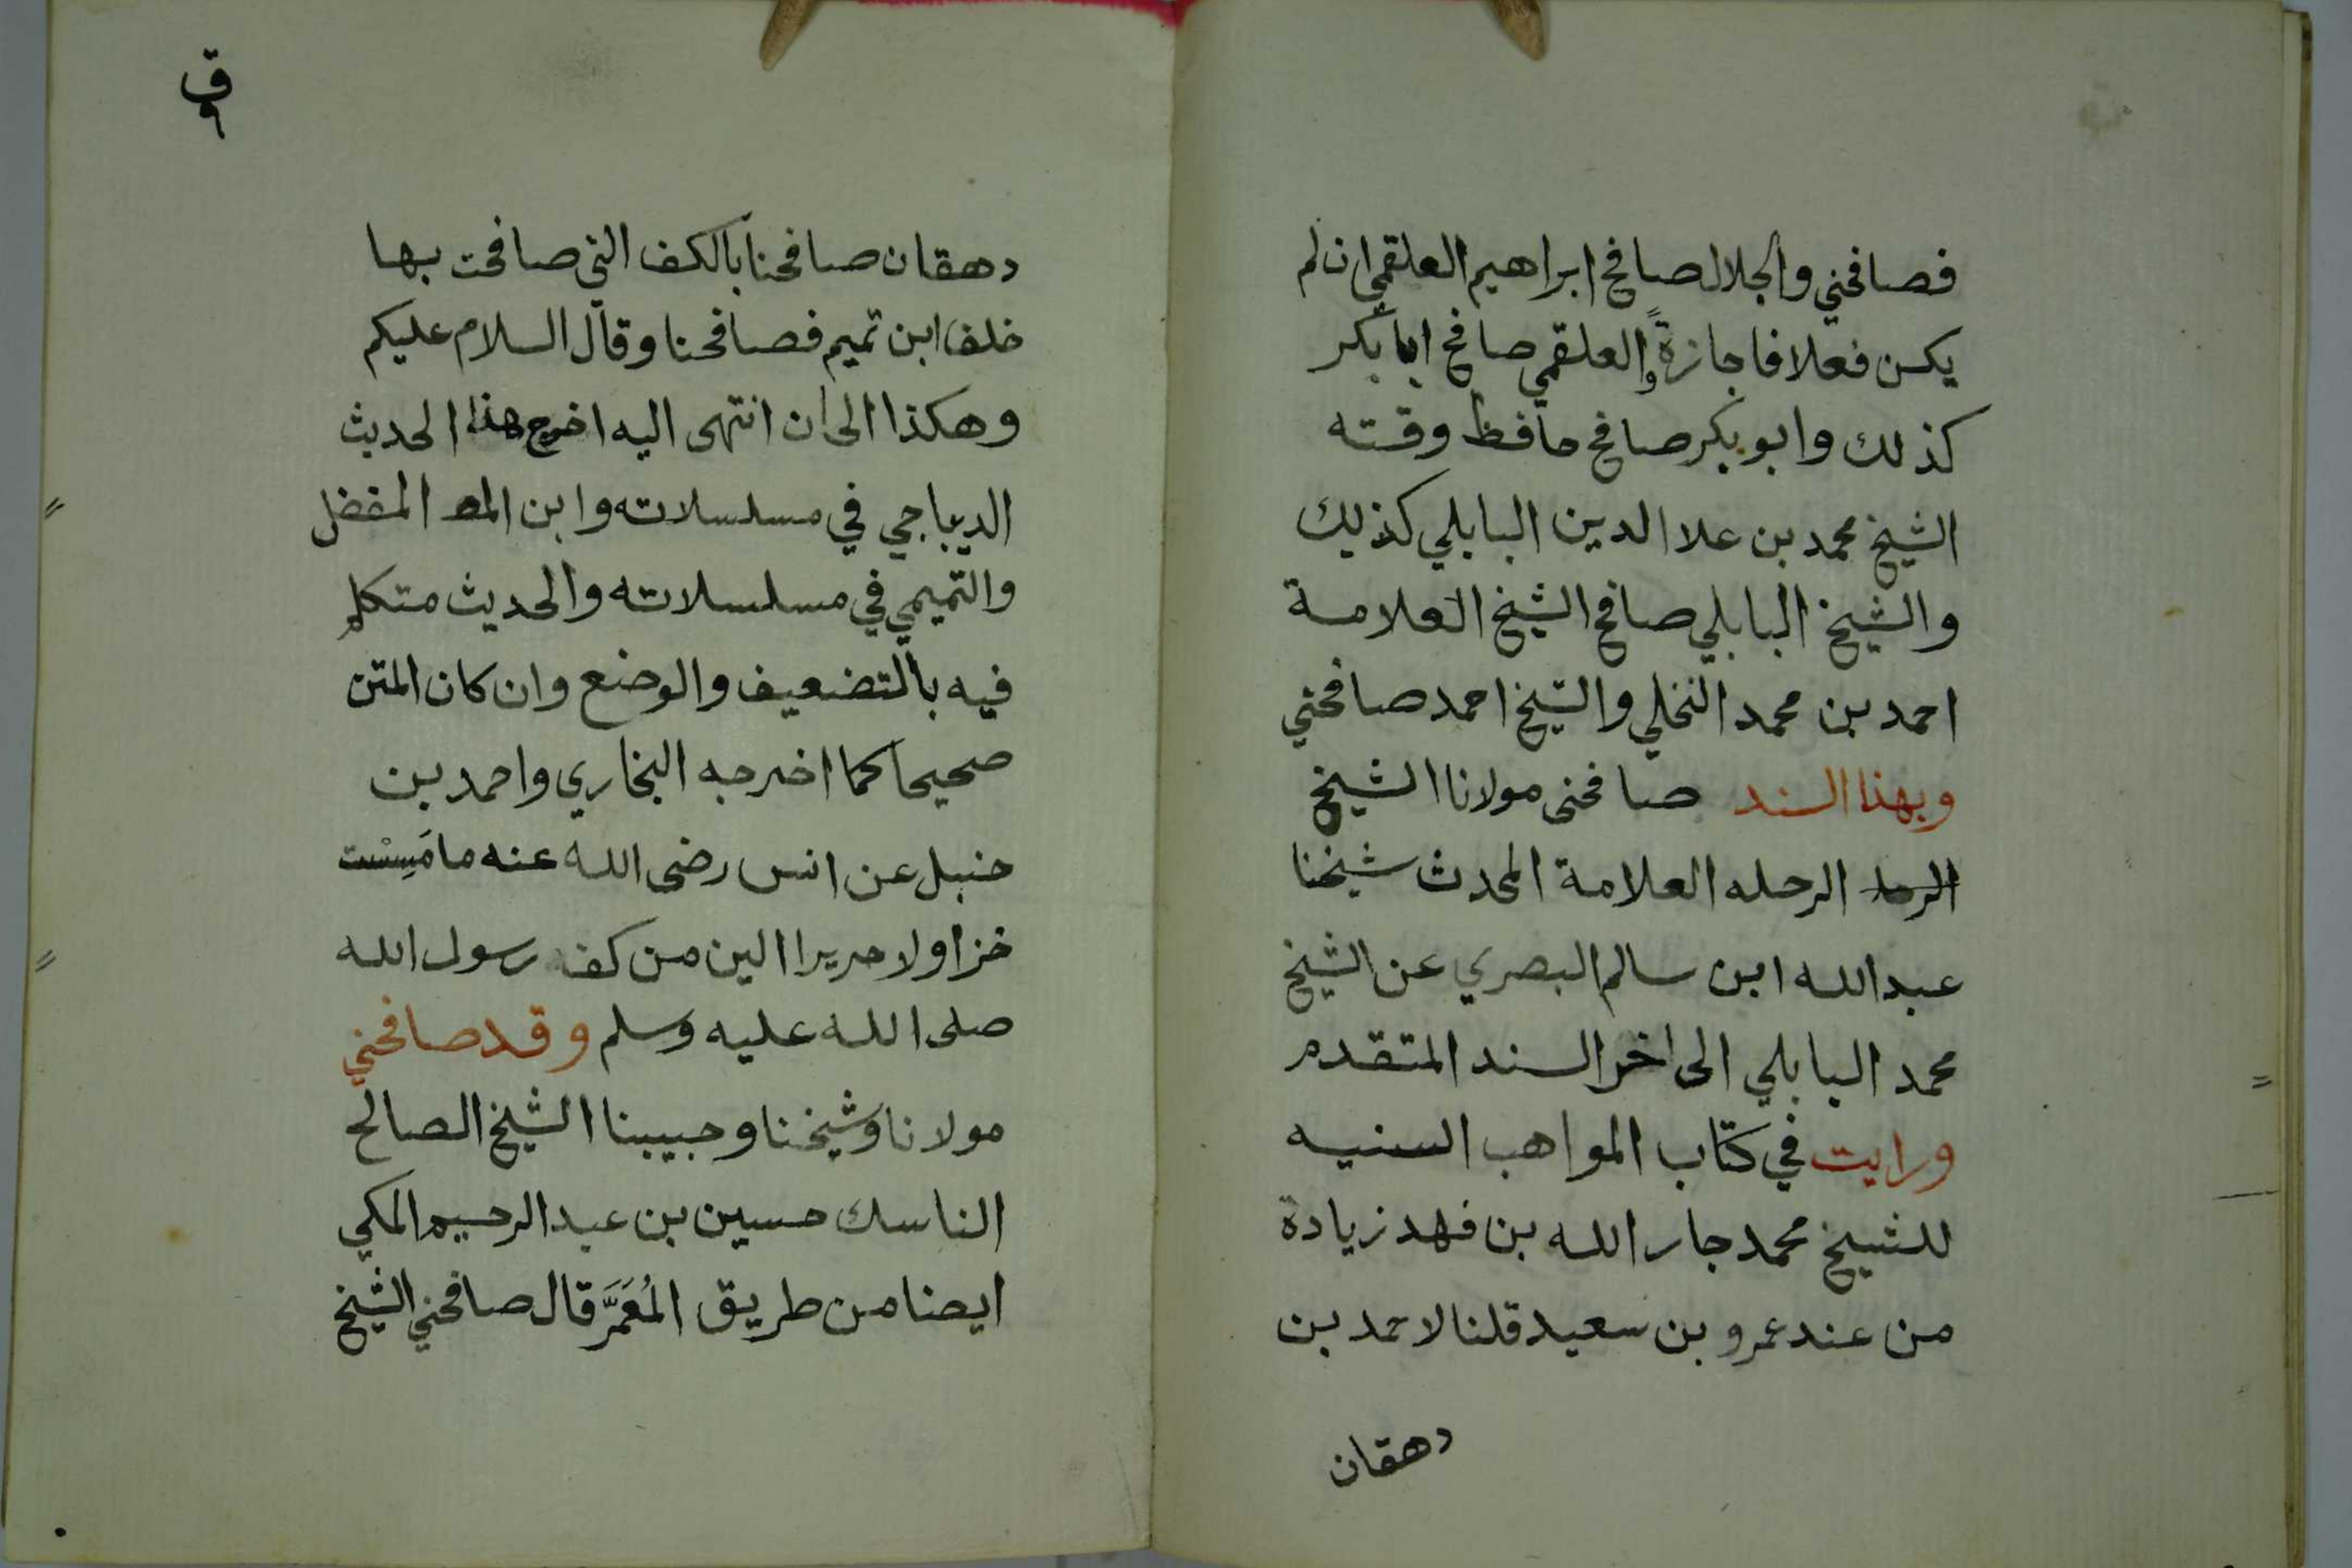 فصافحني والجلال صافح ابراهيم العلقمي ان لم
يكن فعلا فاجازةً والعلقمي صافح ابا بكر
كذلك وابو بكر صافح حافظ وقته
الشيخ محمد بن علا الدين البابلي كذلك
والشيخ البابلي صافح الشيخ العلامة
احمد بن محمد النخلي والشيخ احمد صافحني
وبهذا السند صافحنى مولانا الشيخ
الرحله العلامة المحدث شيخنا
عبد الله ابن سالم البصري عن الشيخ
محمد البابلي الى اخر السند المتقدم
ورايت في كتاب المواهب السنيه
للشيخ محمد جار الله بن فهد زيادة
من عند عمرو بن سعيد قلنا لاحمد بن
دهقان
ق
٦
دهقان صافحنا بالكف التي صافحت بها
خلف ابن تميم فصافحنا وقال السلام عليكم
وهكذا الى ان انتهى اليه اخرج هذا الحديث
الديباجي في مسلسلاته وابن المفضل
والتميمي في مسلسلاته والحديث متكلم
فيه بالتضعيف والوضع وان كان المتن
صحيحا كما اخرجه البخاري واحمد بن
حنبل عن انس رضى الله عنه ما مَسِسْت
خزا ولا حريرا الين من كف رسول الله
صلى الله عليه وسلم وقد صافحني
مولانا وشيخنا وحبيبنا الشيخ الصالح
الناسك حسين بن عبد الرحيم المكي
ايضا من طريق المُعَمَّر قال صافحني الشيخ